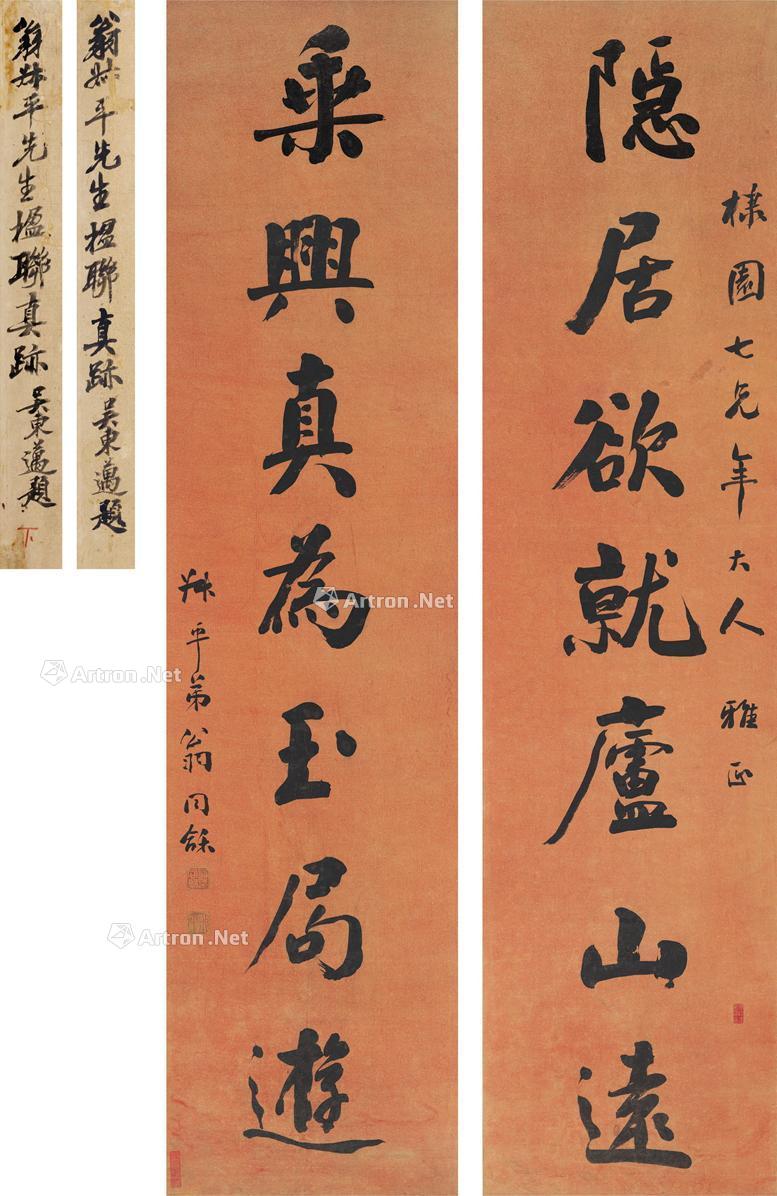 棣園七兄年大人 雅正
隱居欲就廬山遠
乘興真為玉局遊
叔平弟翁同龢
翁叔平先生楹聯真跡 吳東邁題
翁叔平先生楹聯真跡 吳東邁題 下
Artron.Net
Artron.Net
Artron.Net